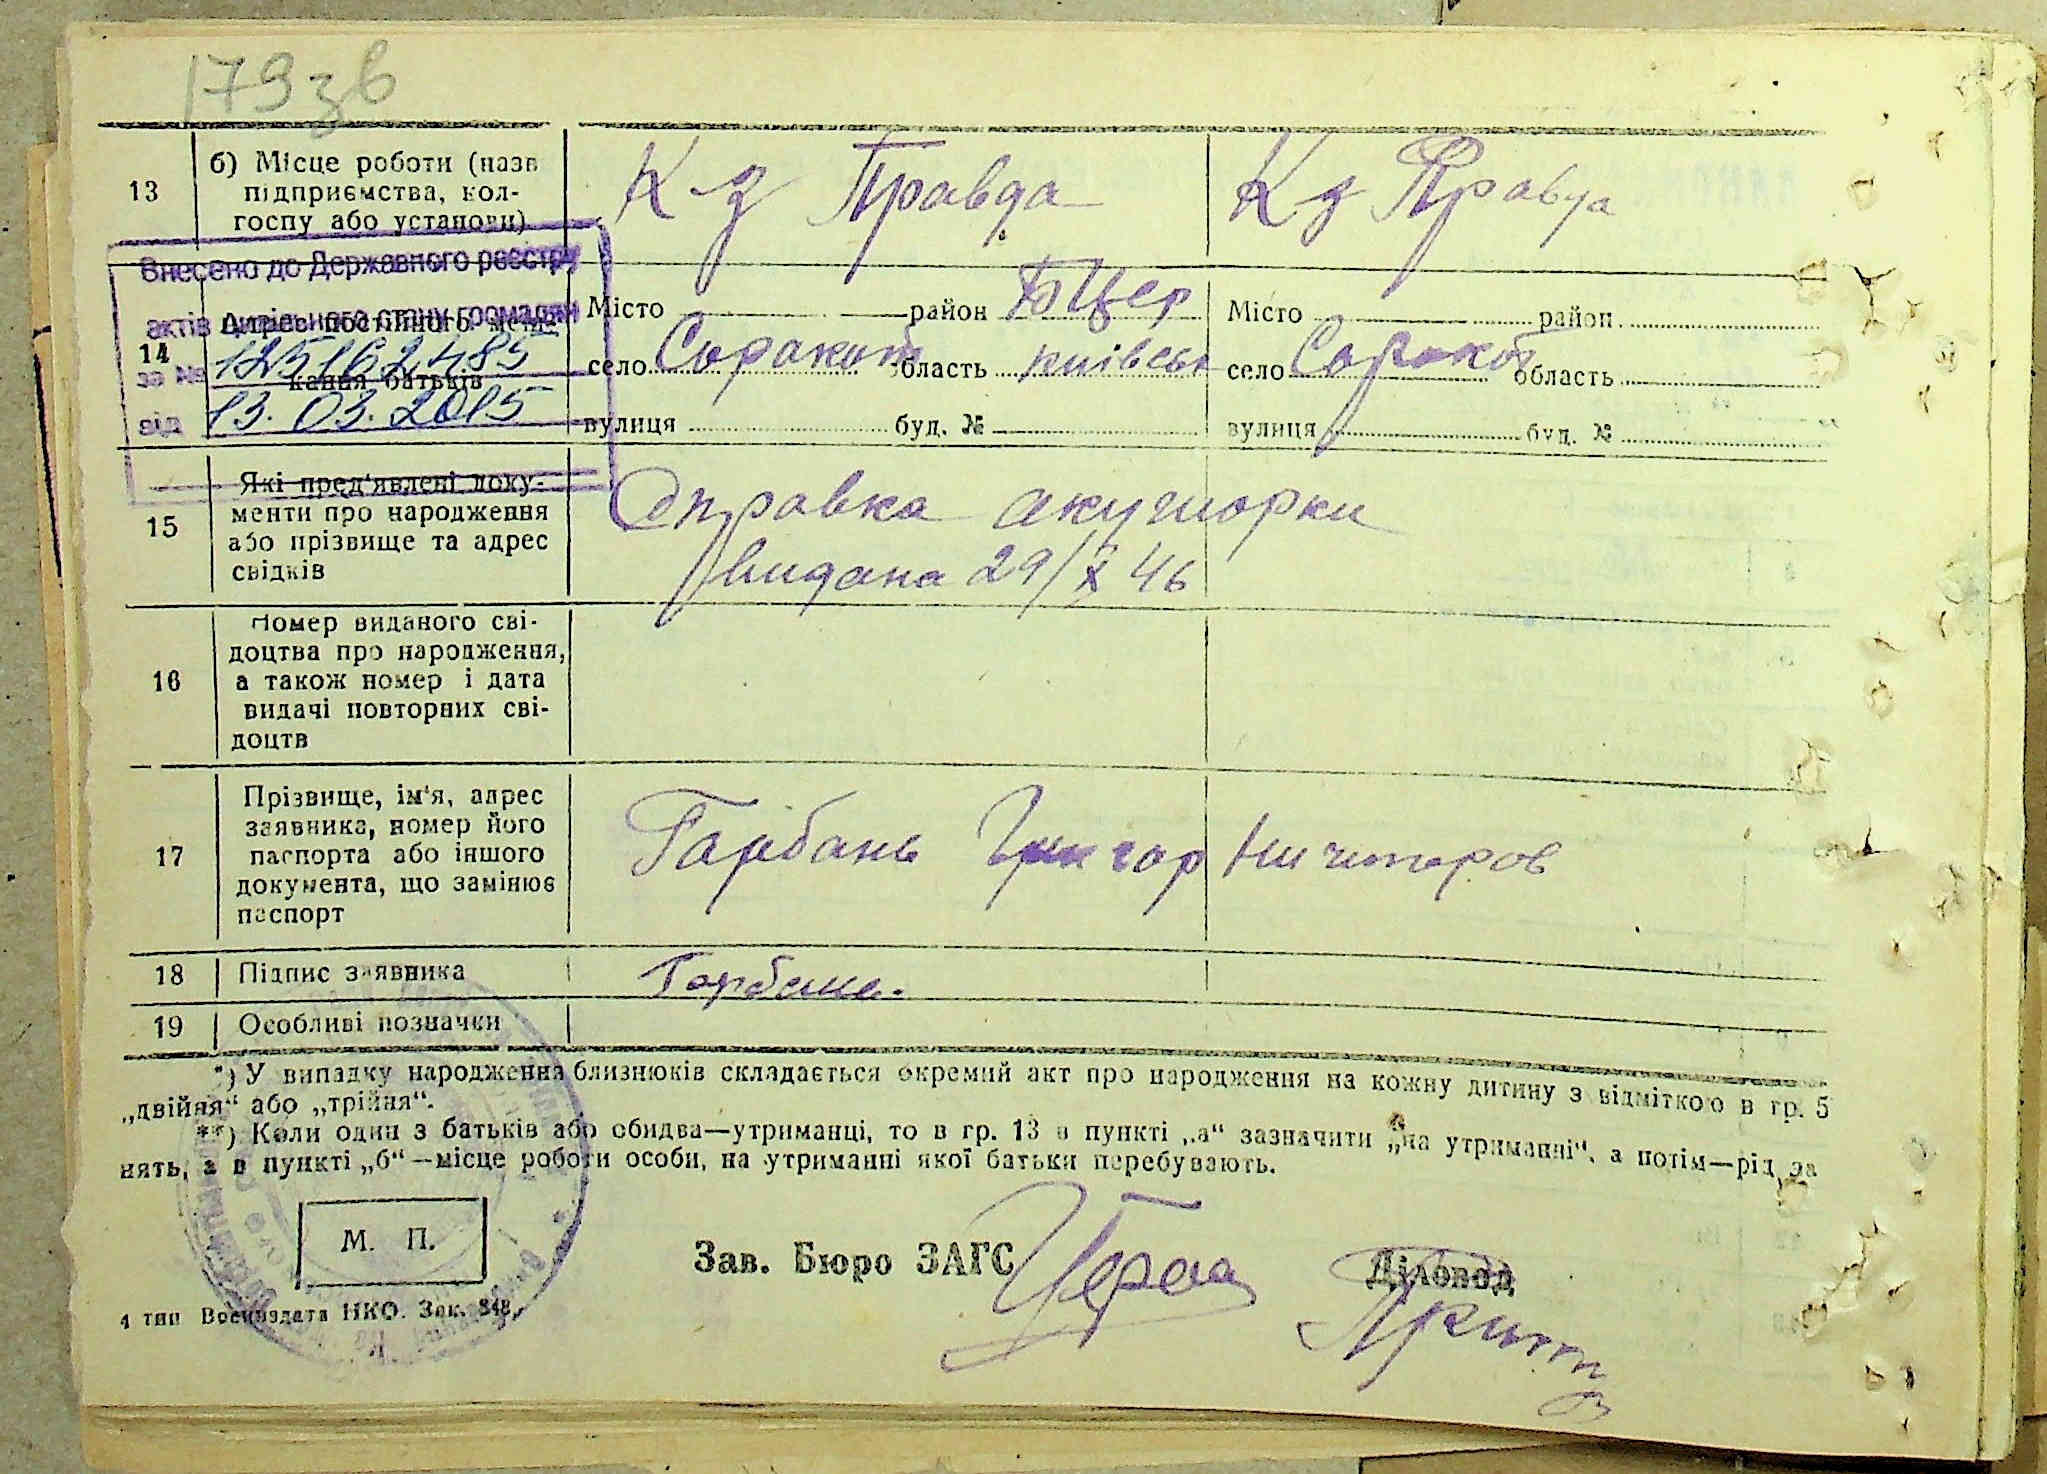 179зв
13
б) Місце роботи (назв
підприємства, кол-
госпу або установи)
К з Правда
К з Правда
Внесено до Державного реєстру
актів цивільного стану громадян
за № 12516 2485
від 13. 03. 2015
14
Адрес постійного меш-
кання батьків
Місто район БЦер
село область київськ
вулиця буд. №
Місто район
село область
вулиця буд. №
15
Які пред'явлені доку-
менти про народження
або прізвище та адрес
свідків
Справка акушорки
видана 29/X 46
16
Номер виданого сві-
доцтва про народження,
а також номер і дата
видачі повторних сві-
доцтв
17
Прізвище, ім'я, адрес
заявника, номер його
паспорта або іншого
документа, що замінює
паспорт
Гарбань Григор Ничипоров
18
Підпис заявника
Горбань.
19
Особливі позначки
*) У випадку народження близнюків складається окремий акт про народження на кожну дитину з відміткою в гр. 5
„двійня“ або „трійня“.
**) Коли один з батьків або обидва—утриманці, то в гр. 13 в пункті „а“ зазначити „на утриманні“, а потім—рід за
нять, а в пункті „б“—місце роботи особи, на утриманні якої батьки перебувають.
М. П.
Зав. Бюро ЗАГС
Діловод
4 тип Воениздата НКО. Зак. 848.